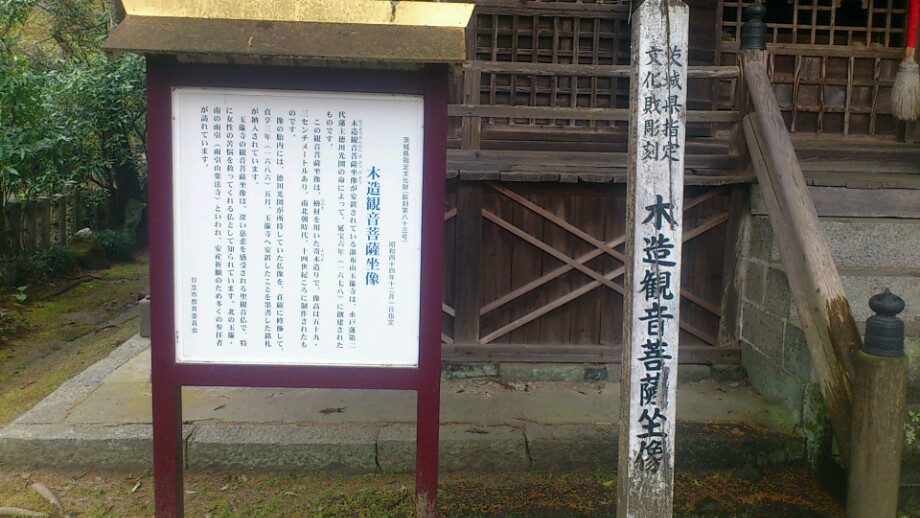 茨城県指定文化財(彫刻第八十三号)
昭和四十四年十二月一日指定
木造観音菩薩坐像
木造観音菩薩坐像が安置されている瀑布山玉簾寺は、水戸藩第二
代藩主徳川光圀の命によって、延宝六年(一六七八)に創建された
ものです。
この観音菩薩坐像は、檜材を用いた寄木造りで、像高は五十九・
三センチメートルあり、南北朝時代、十四世紀ころに制作されたも
のです。
像の胎内には、徳川光圀が所持していた仏像を、荘厳に修飾して、
貞享三年(一六八六)五月、玉簾寺へ安置したことを墨書した銘札
が納入されています。
玉簾寺の観音菩薩坐像は、深い慈悲を感受される聖観音仏で、特
に女性の苦悩を救ってくれる仏として知られています。北の玉簾・
南の雨引(雨引山楽法寺)といわれ、安産祈願のため多くの参拝者
が訪れています。
日立市教育委員会
茨城県指定
文化財彫刻
木造観音菩薩坐像